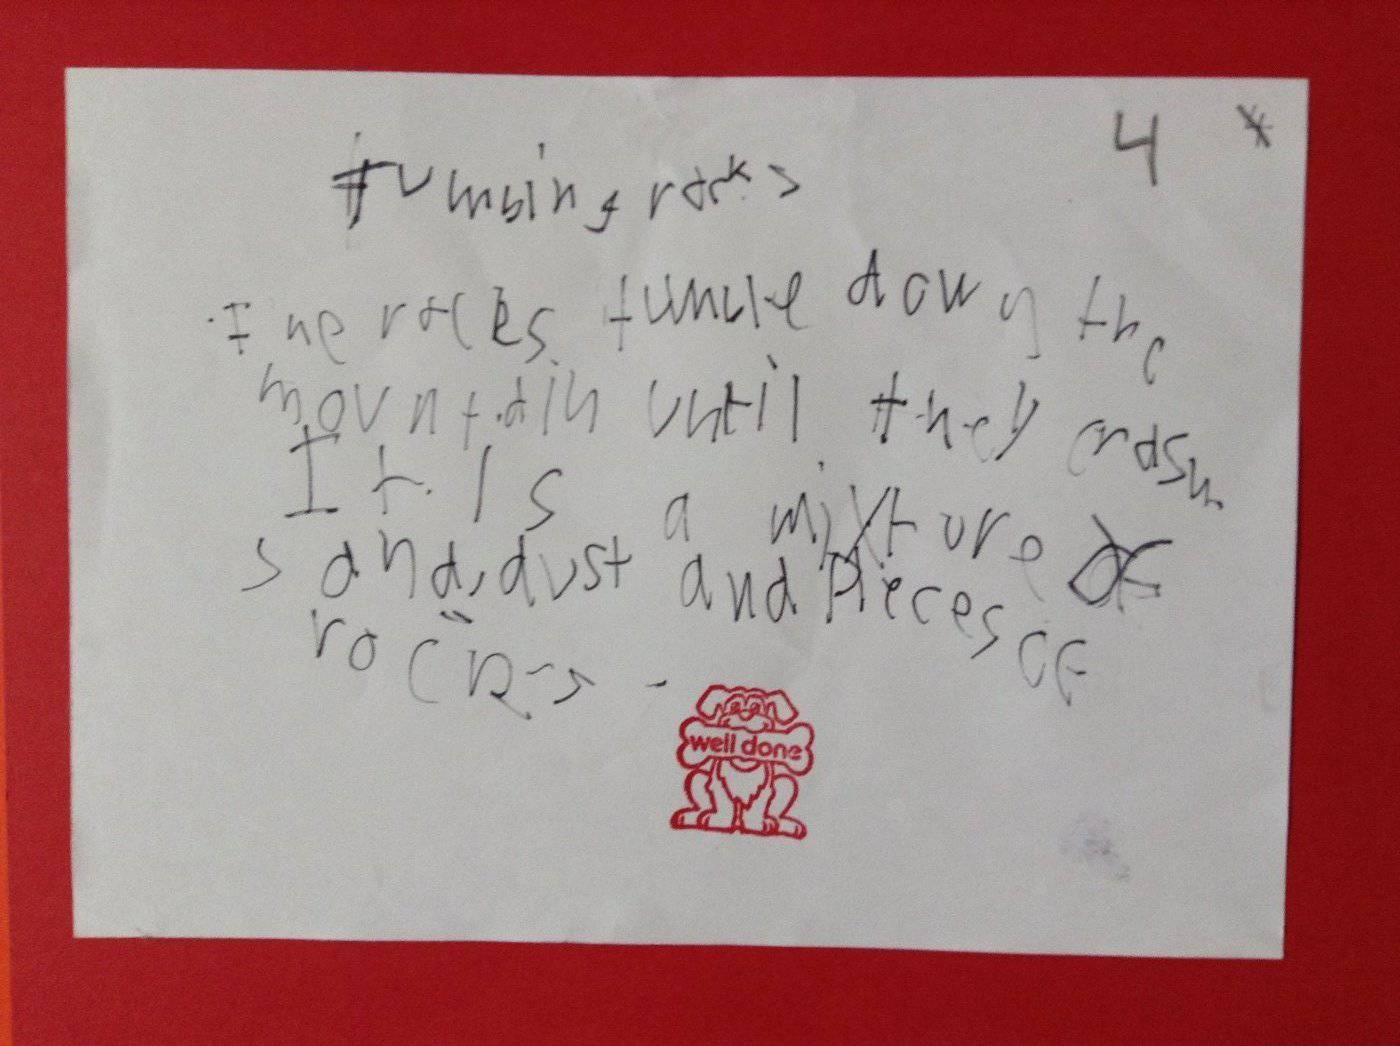 4 *
tumbling rocks
The rocks tumble down the
mountain until they crash
It is a mixture of
sand, dust and pieces of
rocks.
well done